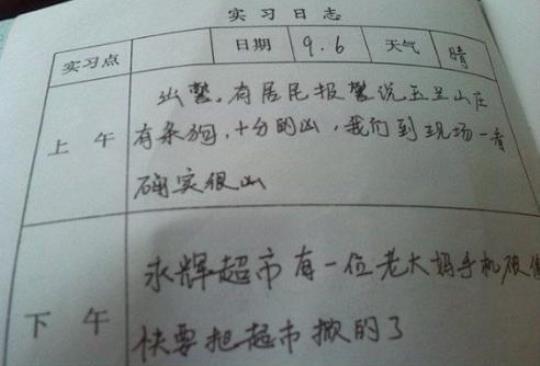 实习日志
实习点 日期 9.6 天气 晴
上午
出警。有居民报警说五星山庄
有条狗，十分的凶，我们到现场一看
确实很凶
下午
永辉超市有一位老大妈手机被偷
快要把超市掀的了